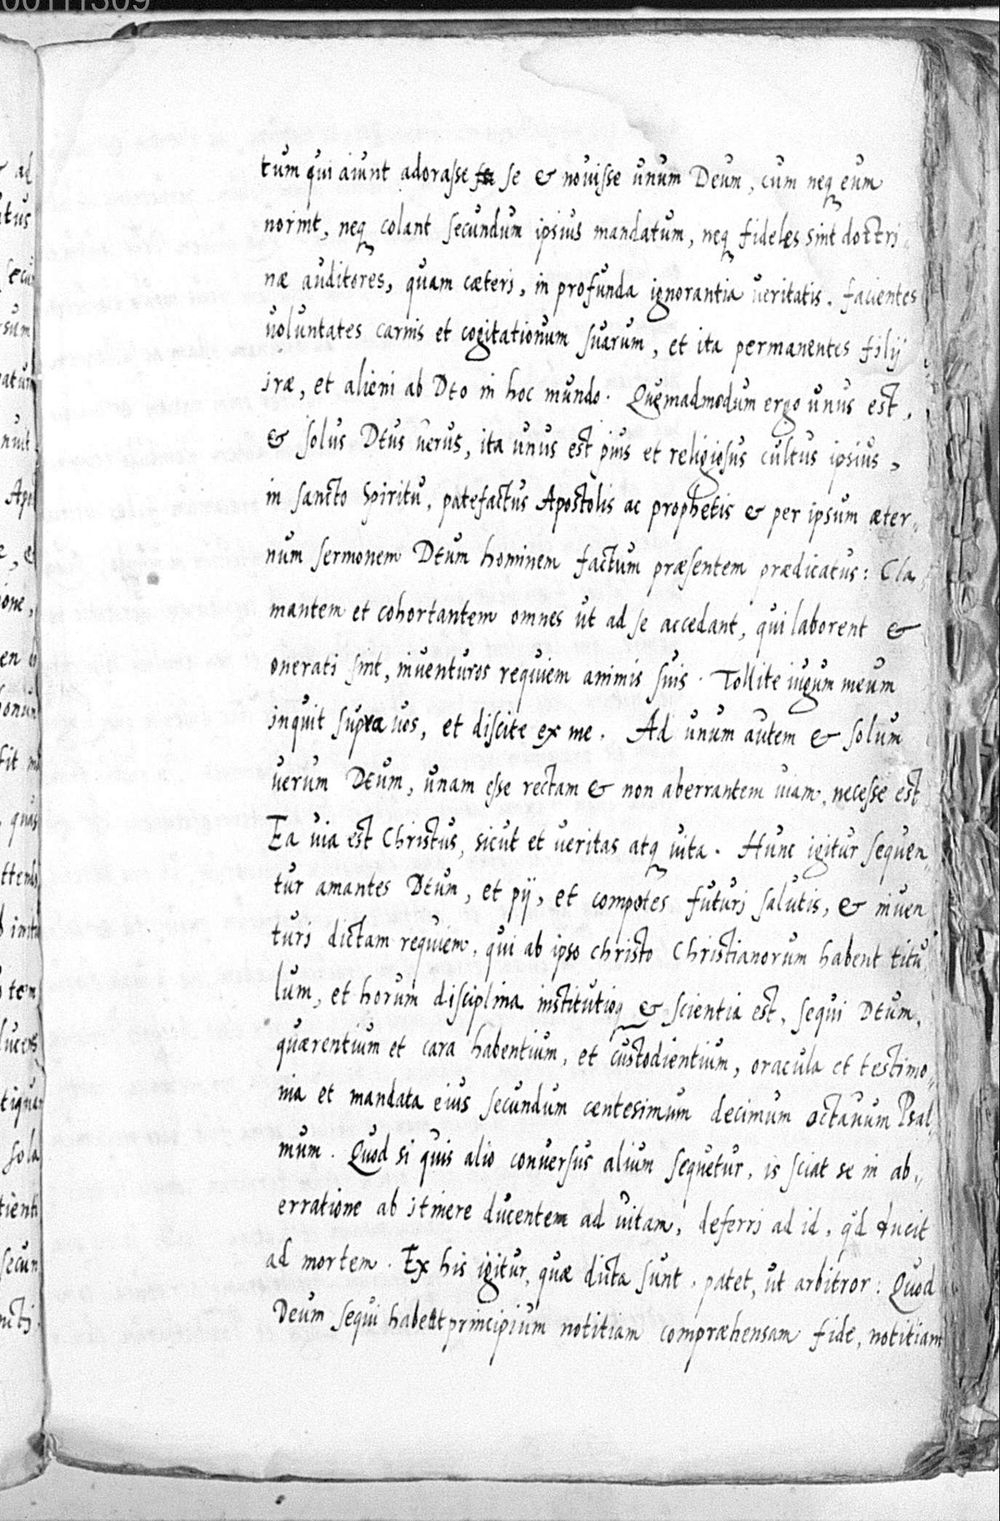 tum qui aiunt adorasse se & nouisse unum Deum, cum neq eum
norint, neq colant secundum ipsius mandatum, neq fideles sint doctri
næ auditores, quam cæteri, in profunda ignorantia ueritatis. facientes
uoluntates carnis et cogitationum suarum, et ita permanentes filij
iræ, et alieni ab Deo in hoc mundo. Quemadmodum ergo unus est,
& solus Deus uerus, ita unus est pius et religiosus cultus ipsius,
in sancto Spiritu, patefactus Apostolis ac prophetis & per ipsum æter,,
num sermonem Deum hominem factum præsentem prædicatus: Cla
mantem et cohortantem omnes ut ad se accedant, qui laborent &
onerati sint, inuenturos requiem animis suis. Tollite iugum meum
inquit supra uos, et discite ex me. Ad unum autem & solum
uerum Deum, unam esse rectam & non aberrantem uiam, necesse est
Ea uia est Christus, sicut et ueritas atq uita. Hunc igitur sequen,,
tur amantes Deum, et pij, et compotes futuri salutis, & inuen
turi dictam requiem, qui ab ipso christo Christianorum habent titu
lum, et horum disciplina institutioq & scientia est, sequi Deum,
quærentium et cara habentium, et custodientium, oracula et testimo,,
nia et mandata eius secundum centesimum decimum octauum Psal
mum. Quod si quis alio conuersus alium sequetur, is sciat se in ab,,
erratione ab itinere ducentem ad uitam, deferri ad id, qd ducit
ad mortem. Ex his igitur, quæ dicta sunt, patet, ut arbitror: Quod
Deum sequi habeat principium notitiam compræhensam fide, notitiam